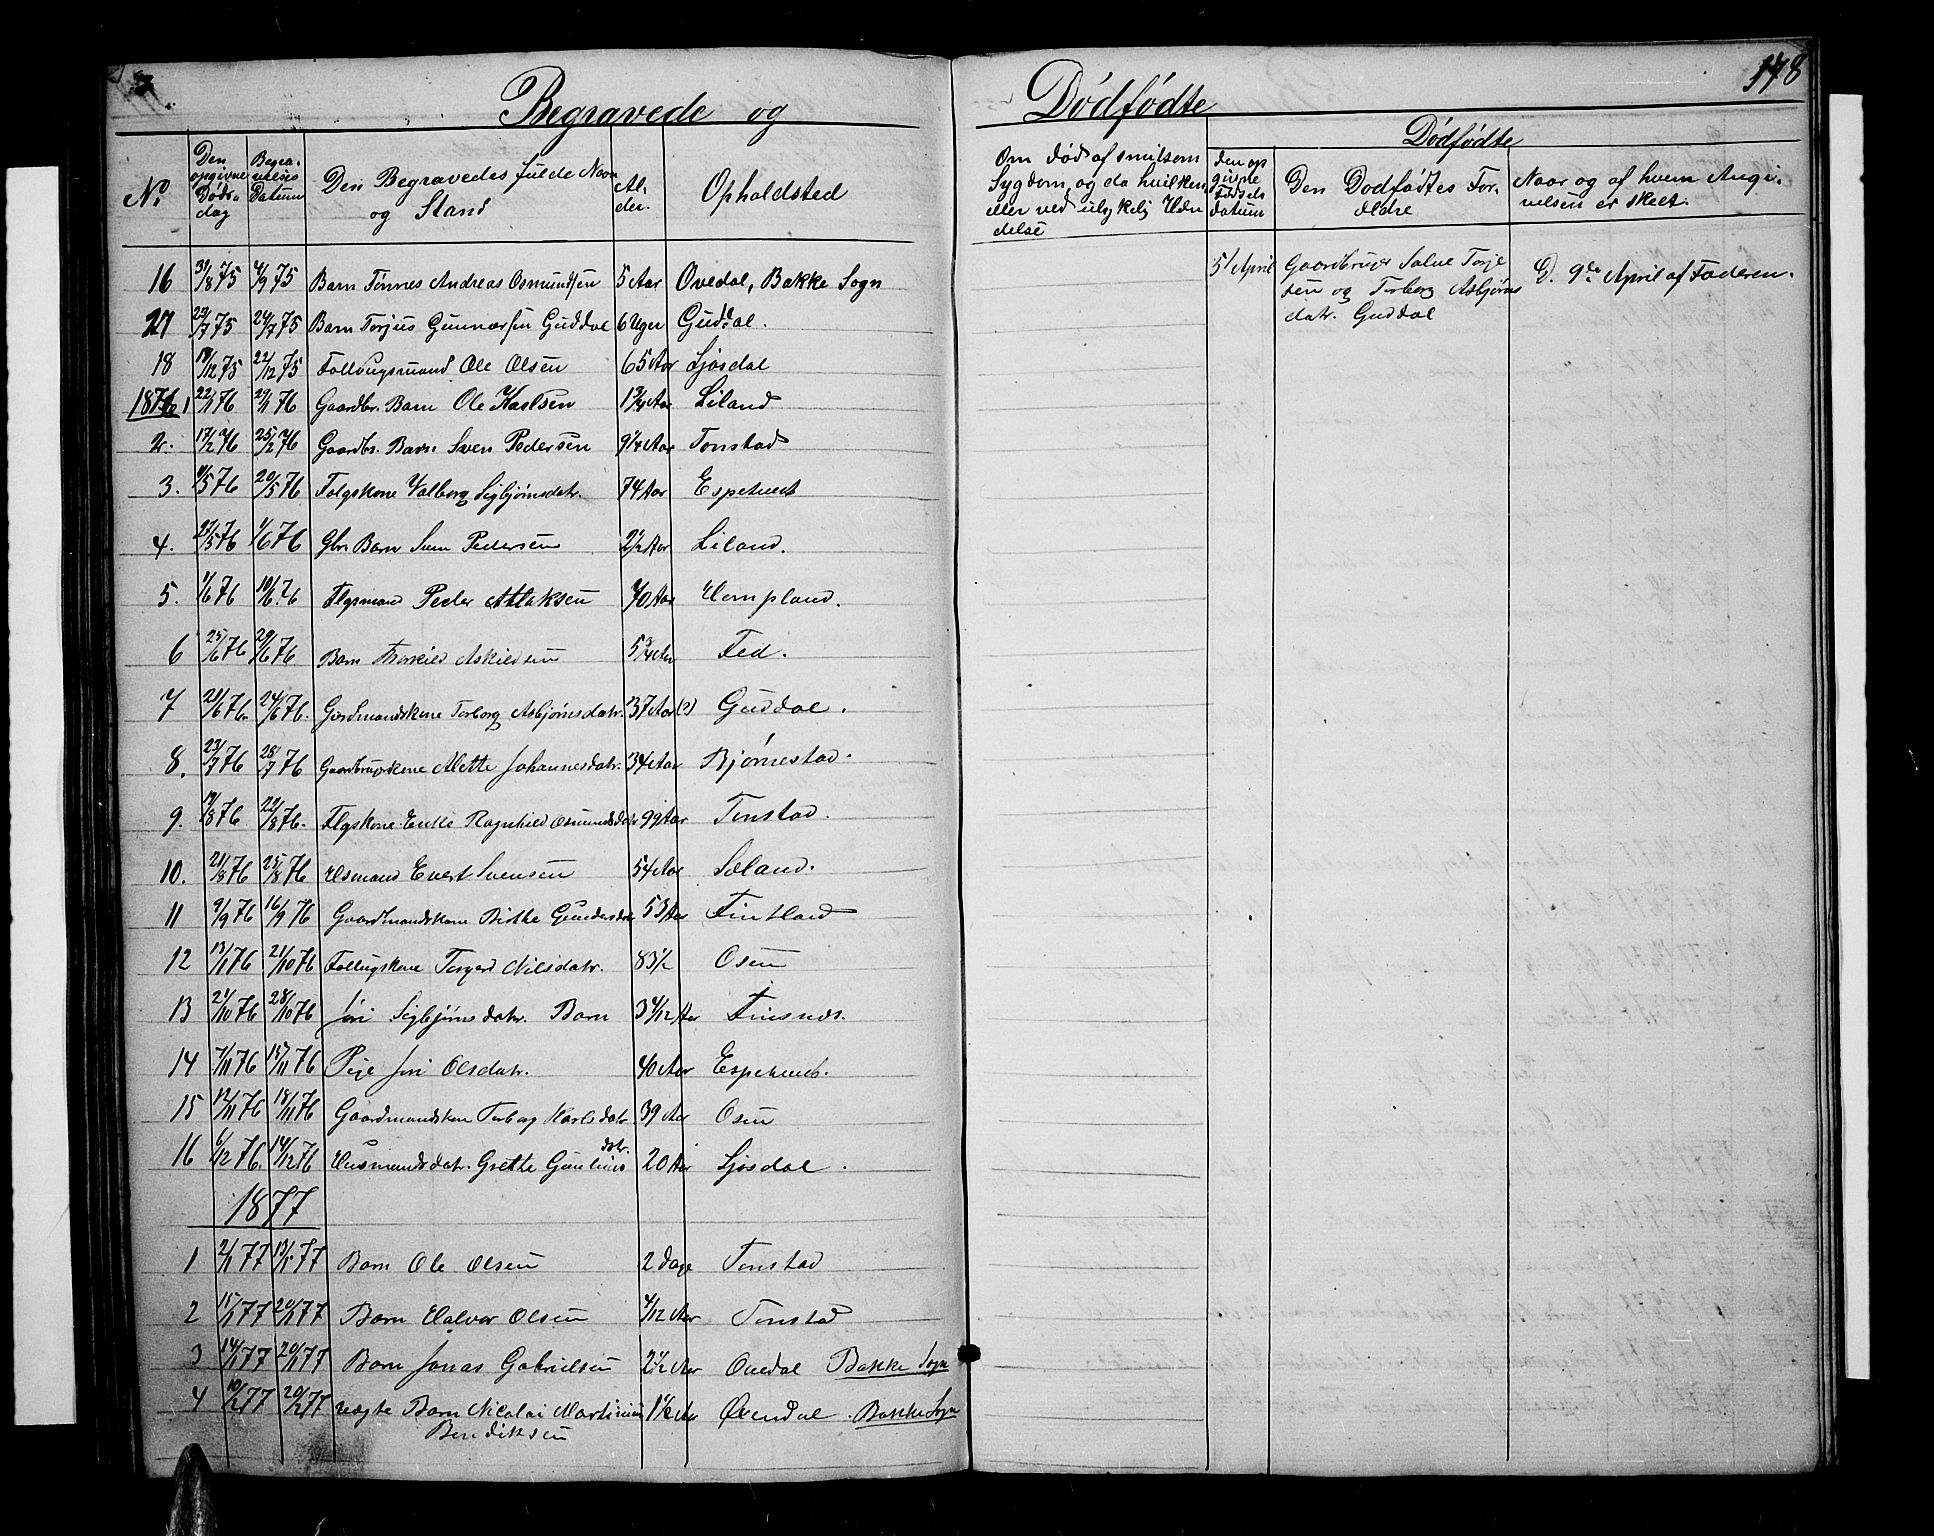 178
Begravede og Dødfødte
No
Den opgivne Dødsdag
Begravelses Datum
Den Begravedes fulde Navn og Stand
Alder.
Opholdsted
Om død af smitsom Sygdom, og da hvilken, eller ved ulykkelig Hændelse
Dødfødte
den opgivne Fødsels datum
Den Dødfødtes Forældre
Naar og af hvem Angivelsen er skeet.
16 31/8 75 4/9 75 Barn Tønnes Andreas Osmundsen 5 Aar Ovedal, Bakke Sogn
5/ April Gaardbruger Salve Torjesen og Torborg Asbjørnsdatr. Guddal 9de April af Faderen.
17 75 24/7 75 Barn Torjus Gunnarsen Guddal 6 Uger Guddal.
18 /12 75 22/12 75 Ole Olsen 65 Aar Sjøsdal
1876 1 22/1 76 29/1 76 Gaardbr. Barn Ole Karlsen 1 3/4 Aar Liland
2. 17/2 76 25/2 76 Gaardbr. Barn Sven Pedersen 9 1/4 Aar Tonstad
3. /5 76 20/5 76 Folgskone Valborg Sigbjørnsdatr. 74 Aar Espetvedt
4. 27/5 76 1/6 76 Gbr. Barn Sven Pedersen 2 1/2 Aar Liland.
5. 1/6 76 10/6 76 Flgsmand Peder Atlaksen 70 Aar Hompland.
6 25/6 76 29/6 76 Barn Thorkild Askildsen 5 3/4 Aar Fed.
7 21/6 76 24/6 76. Gordmandskone Torborg Asbjørnsdatr. 37 Aar (?) Guddal.
8. 23/7 76 28/7 76 Gaardbrugerkone Alette Johannesdatr. 34 Aar Bjørnestad.
9. 19/8 76 22/8 76. Flgskone Enke Ragnhild Osmundsdatr 99 Aar Tonstad.
10. 21/8 76 25/8 76 Evert Svensen 54 Aar Sæland.
11 9/9 76 16/9 76 Gaardmandskone Birthe Gundersdatr 53 Aar Fintland
12 13/ 76 21/10 76 Torger Nilsdatr. 83 1/2 Osen
13 21/10 76 28/10 76 Jøri Sigbjørnsdatr. Barn 3 4/12 Aar Finsnæs.
14 7/11 76 15/11 76 Pige Jøri Olsdatr. 40 Aar Espetvedt.
15 12/11 76 18/11 76 Gaardmandskon Torborg Karlsdatr. 39 Aar Osen
16 6/12 76. 14/12 76 Husmandsdatr. Grethe datr. 20 Aar Sjøsdal.
1877
1 2/1 77 13/1 77 Barn Ole Olsen 2 Dage Tonstad
2 15/1 77 20/1 77 Barn Halvor Olsen 4/12 Aar Tonstad
3 14/1 77 20/1 77 Barn Jonas Gabrielsen 2 1/2 Aar Ovedal Bakke Sogn
4 10/2 77 20/2 77 uægte Barn Nicolai Martinius 1 1/2 Aar Øvendal. Bakke Sogn
Bendiksen